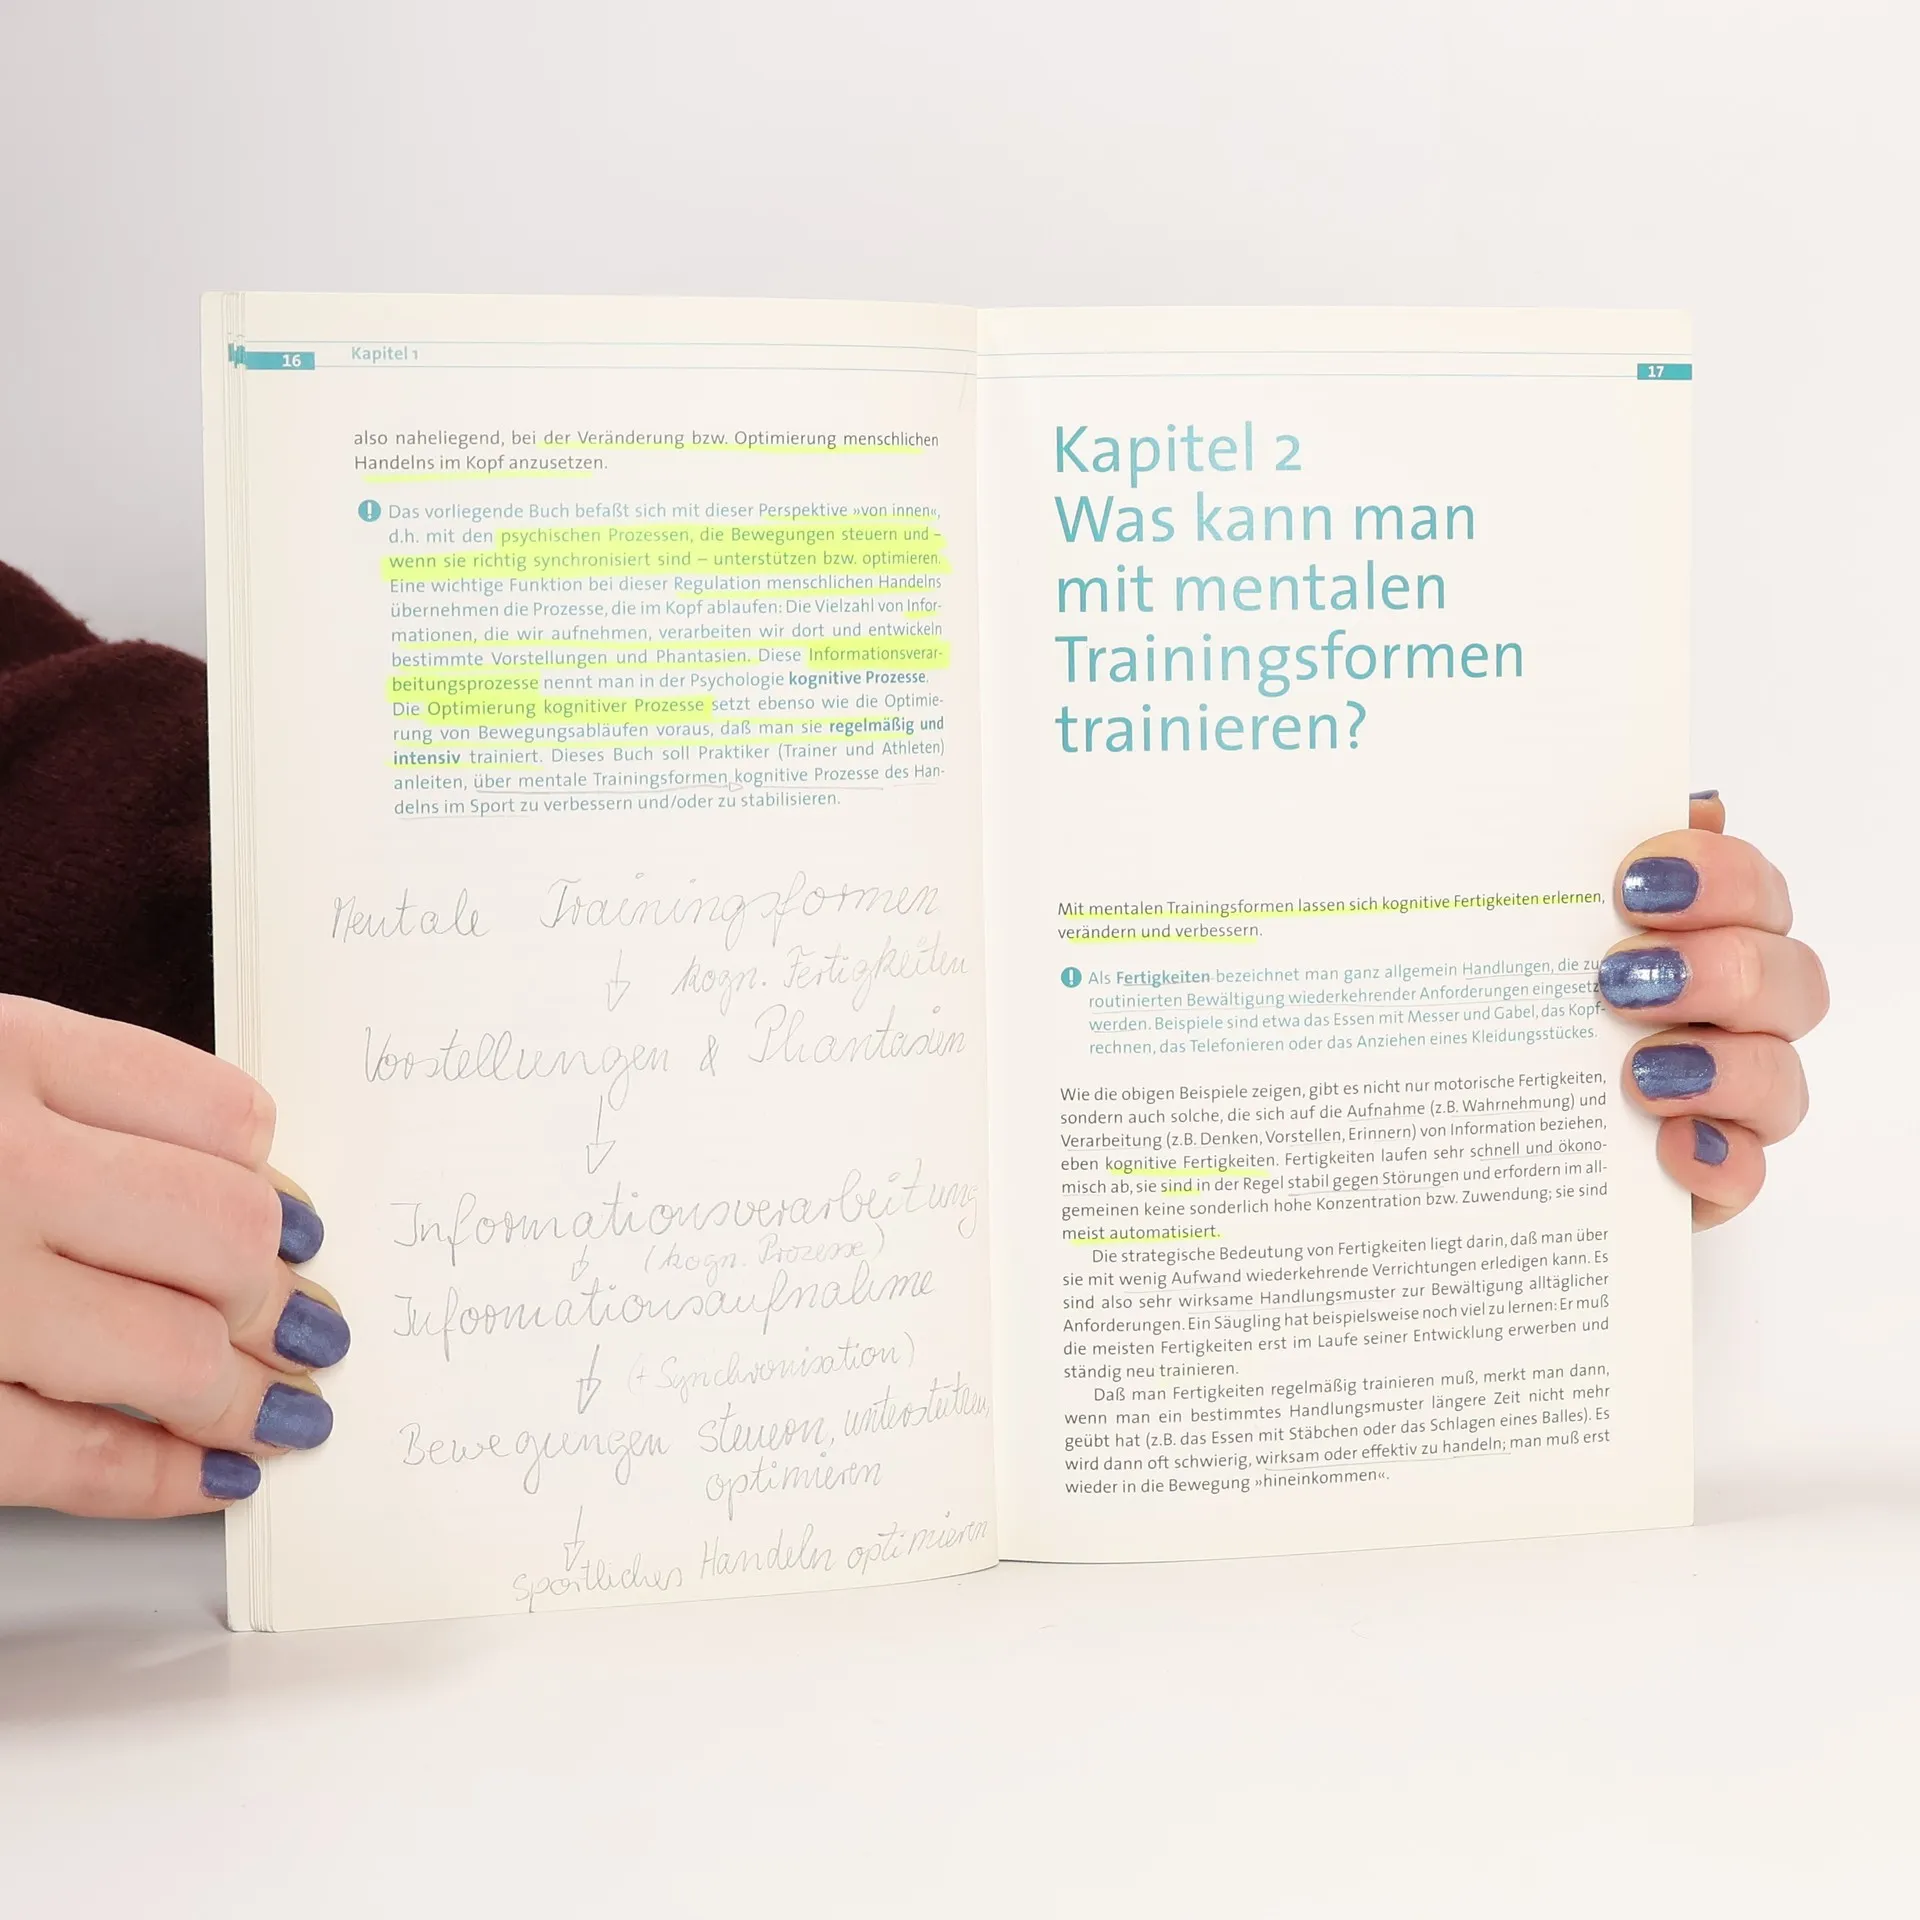 16 Kapitel 1
also naheliegend, bei der Veränderung bzw. Optimierung menschlichen
Handelns im Kopf anzusetzen.
! Das vorliegende Buch befaßt sich mit dieser Perspektive »von innen«,
d.h. mit den psychischen Prozessen, die Bewegungen steuern und –
wenn sie richtig synchronisiert sind – unterstützen bzw. optimieren.
Eine wichtige Funktion bei dieser Regulation menschlichen Handelns
übernehmen die Prozesse, die im Kopf ablaufen: Die Vielzahl von Infor-
mationen, die wir aufnehmen, verarbeiten wir dort und entwickeln
bestimmte Vorstellungen und Phantasien. Diese Informationsverar-
beitungsprozesse nennt man in der Psychologie kognitive Prozesse.
Die Optimierung kognitiver Prozesse setzt ebenso wie die Optimie-
rung von Bewegungsabläufen voraus, daß man sie regelmäßig und
intensiv trainiert. Dieses Buch soll Praktiker (Trainer und Athleten)
anleiten, über mentale Trainingsformen kognitive Prozesse des Han-
delns im Sport zu verbessern und/oder zu stabilisieren.
Mentale Trainingsformen
↓ kogn. Fertigkeiten
Vorstellungen & Phantasien
↓
Informationsverarbeitung
↓ (kogn. Prozesse)
Informationsaufnahme
↓ (+ Synchronisation)
Bewegungen steuern, unterstützen,
optimieren
↓
sportliches Handeln optimieren
17
Kapitel 2
Was kann man
mit mentalen
Trainingsformen
trainieren?
Mit mentalen Trainingsformen lassen sich kognitive Fertigkeiten erlernen,
verändern und verbessern.
! Als Fertigkeiten bezeichnet man ganz allgemein Handlungen, die zu
routinierten Bewältigung wiederkehrender Anforderungen eingesetz
werden. Beispiele sind etwa das Essen mit Messer und Gabel, das Kopf-
rechnen, das Telefonieren oder das Anziehen eines Kleidungsstückes.
Wie die obigen Beispiele zeigen, gibt es nicht nur motorische Fertigkeiten,
sondern auch solche, die sich auf die Aufnahme (z.B. Wahrnehmung) und
Verarbeitung (z.B. Denken, Vorstellen, Erinnern) von Information beziehen,
eben kognitive Fertigkeiten. Fertigkeiten laufen sehr schnell und ökono-
misch ab, sie sind in der Regel stabil gegen Störungen und erfordern im all-
gemeinen keine sonderlich hohe Konzentration bzw. Zuwendung; sie sind
meist automatisiert.
Die strategische Bedeutung von Fertigkeiten liegt darin, daß man über
sie mit wenig Aufwand wiederkehrende Verrichtungen erledigen kann. Es
sind also sehr wirksame Handlungsmuster zur Bewältigung alltäglicher
Anforderungen. Ein Säugling hat beispielsweise noch viel zu lernen: Er muß
die meisten Fertigkeiten erst im Laufe seiner Entwicklung erwerben und
ständig neu trainieren.
Daß man Fertigkeiten regelmäßig trainieren muß, merkt man dann,
wenn man ein bestimmtes Handlungsmuster längere Zeit nicht mehr
geübt hat (z.B. das Essen mit Stäbchen oder das Schlagen eines Balles). Es
wird dann oft schwierig, wirksam oder effektiv zu handeln; man muß erst
wieder in die Bewegung »hineinkommen«.